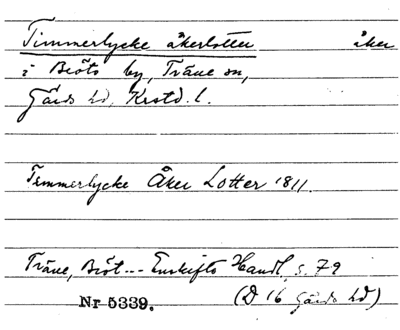 Timmerlycke åkerlotter åker
i Bröts by, Träne sn,
Gärds hd, Krstd. l.
Timmerlycke Åker Lotter 1811.
Träne, Bröt... Enskifts Handl, s. 79
Nr 5339. (D 16 Gärds hd)